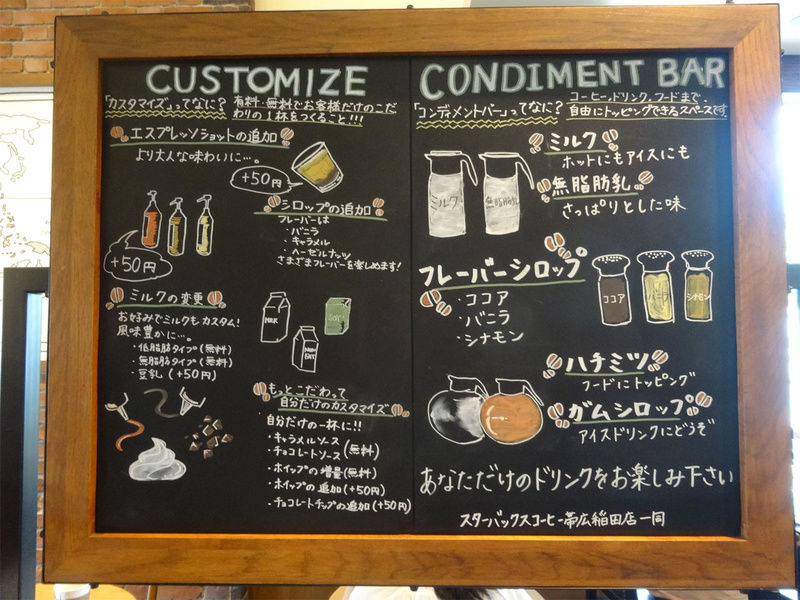 CUSTOMIZE
「カスタマイズ」ってなに？
有料・無料でお客様だけのこだ
わりの1杯をつくること!!!
エスプレッソショットの追加
より大人な味わいに…。
+50円
シロップの追加
フレーバーは
・バニラ
・キャラメル
・ヘーゼルナッツ
さまざまフレーバーを楽しめます!
+50円
ミルクの変更
お好みでミルクもカスタム!
風味豊かに…。
・低脂肪タイプ(無料)
・無脂肪タイプ(無料)
・豆乳 (+50円)
MILK
NON FAT
SOY
もっとこだわって
自分だけのカスタマイズ
自分だけの一杯に!!
・キャラメルソース
・チョコレートソース (無料)
・ホイップの増量(無料)
・ホイップの追加(+50円)
・チョコレートチップの追加(+50円)
CONDIMENT BAR
「コンディメントバー」ってなに？
コーヒー、ドリンク、フードまで、
自由にトッピングできるスペースです。
ミルク
ホットにもアイスにも
無脂肪乳
さっぱりとした味
ミルク
無脂肪乳
フレーバーシロップ
・ココア
・バニラ
・シナモン
ココア
バニラ
シナモン
ハチミツ
フードにトッピング
ガムシロップ
アイスドリンクにどうぞ
あなただけのドリンクをお楽しみ下さい
スターバックスコーヒー帯広稲田店一同